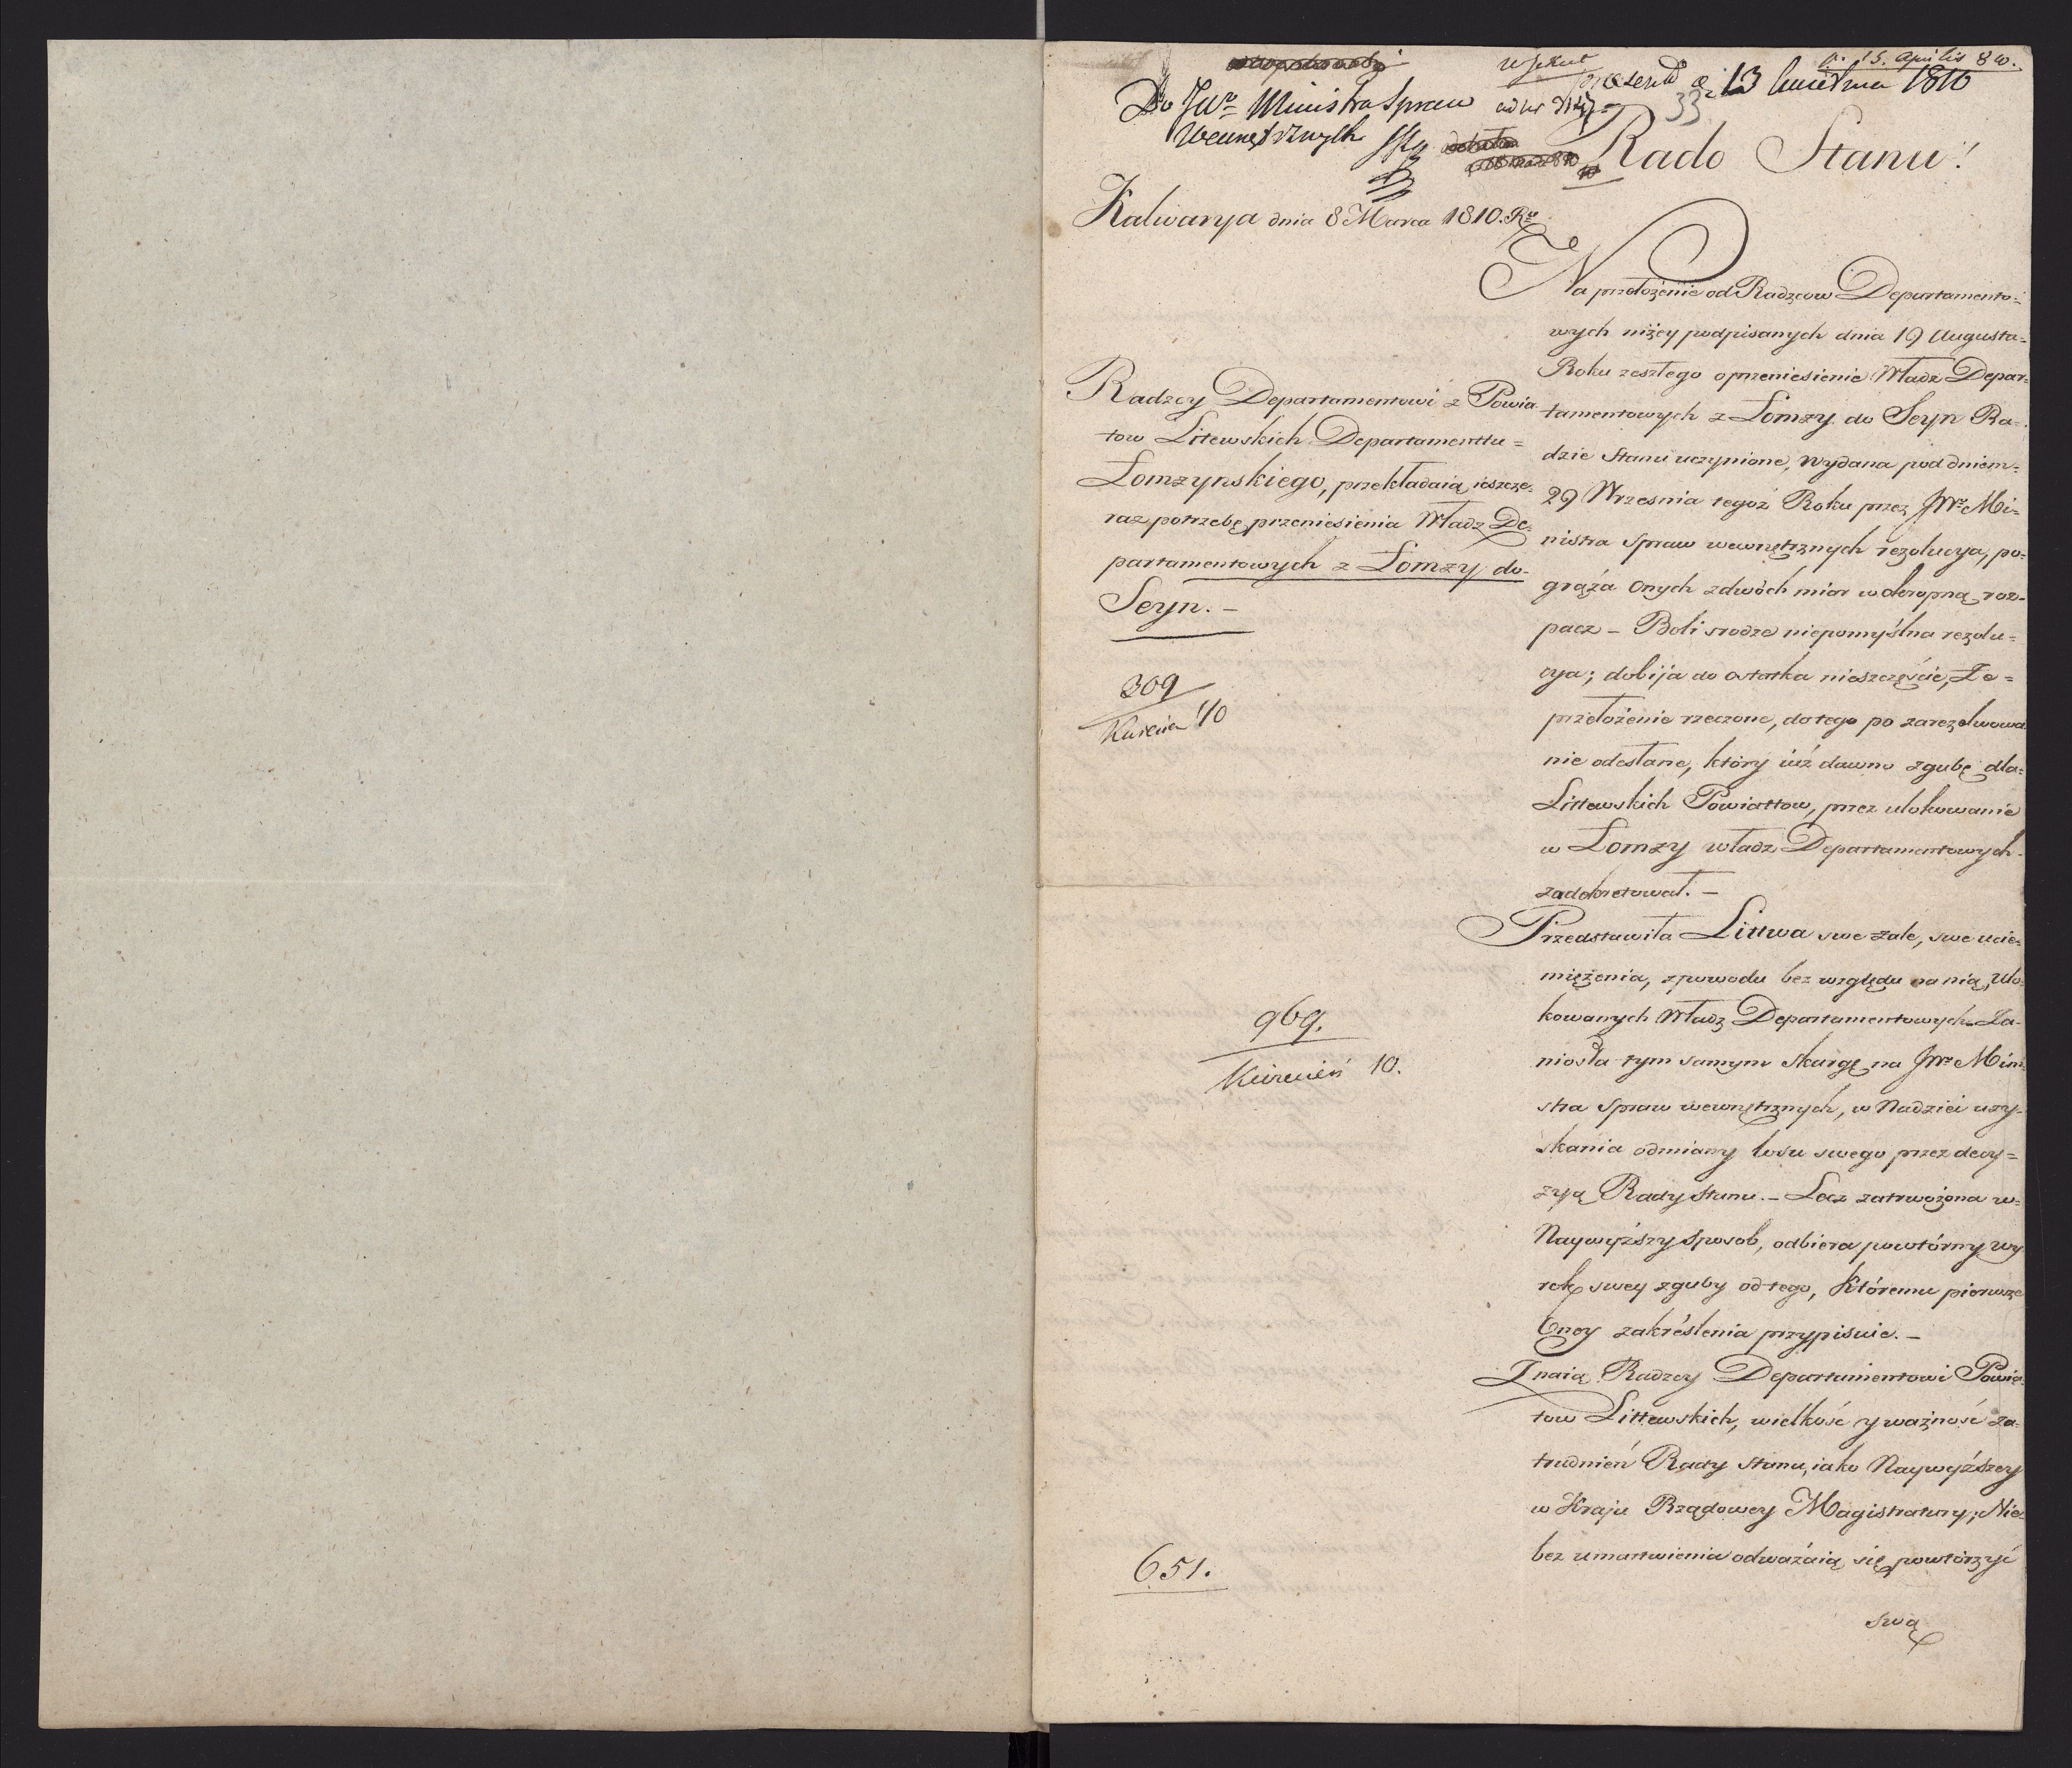 p. 15. Aprilis 810.
praesent d. 13 Kwietnia 1810
33
Do JWo Ministra Spraw
Wewnętrznych
Rado Stanu!
Kalwarya dnia 8 Marca 1810. Ru
Radzcy Departamentowi z Powia
tow Litewskich Departamentu=
Łomzynskiego, przekładaią ieszcze
raz potrzebę przeniesienia Władz De-
partamentowych z Łomzy do-
Seyn. –
309
Kwietnia 1810
969.
Kwiecień 10.
651.
Na przełożenie od Radzcow Departamento=
wych niżey podpisanych dnia 19 Augusta=
Roku zeszłego o przeniesienie Władz Depar=
tamentowych z Łomzy do Seyn Ra=
dzie Stanu uczynione, wydana pod dniem=
29 Wrzesnia tegoż Roku przez JWo Mi=
nistra Spraw wewnętrznych rezolucya, po=
grąża Onych z dwóch miar w okropną roz=
pacz – Boli srodze niepomyślna rezolu=
cya; dobija do ostatka nieszczęście, Że=
przełożenie rzeczone, do tego po zarezolwowa
nie odesłane, który iuż dawno zgubę dla=
Littewskich Powiattow, przez ulokowanie
w Łomzy władz Departamentowych-
zadekretował. –
Przedstawiła Littwa swe żale, swe ucie=
miężenia, z powodu bez względu na nią, ulo=
kowanych Władz Departamentowych. Za-
niosła tym samym skargę na JWo Mini=
stra Spraw wewnętrznych, w Nadziei uzy-
skania odmiany losu swego przez decy=
zyą Rady Stanu. – Lecz zatrwożona w=
Naywyższy sposob, odbiera powtórny wy
rok swey zguby od tego, Któremu pierwsze
Oney zakréslenia przypisuie. –
Znaią Radzcy Departamentowi Powia=
tow Littewskich, wielkość y ważność za=
trudnień Rady Stanu, iako Naywyższey
w Kraju Rządowey Magistratury; Nie=
bez umartwienia odważaią się powtórzyć
swą